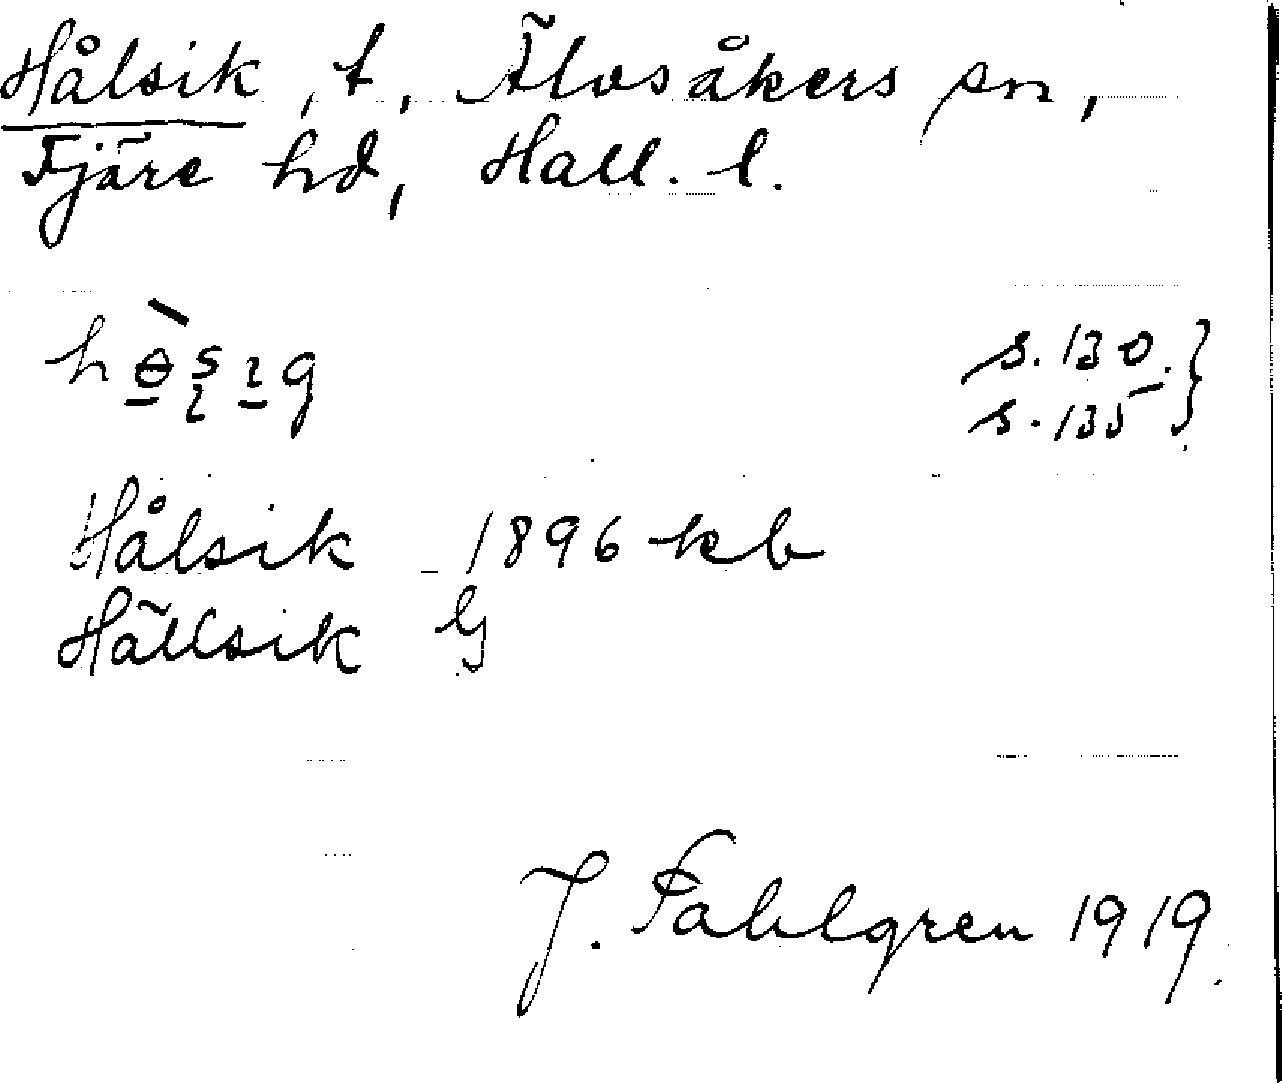 Hålsik, t, Älvsåkers sn,
Fjäre hd, Hall. l.
s. 130.
s. 135
Hålsik 1896 kb
Hällsik G
J. Fahlgren 1919.